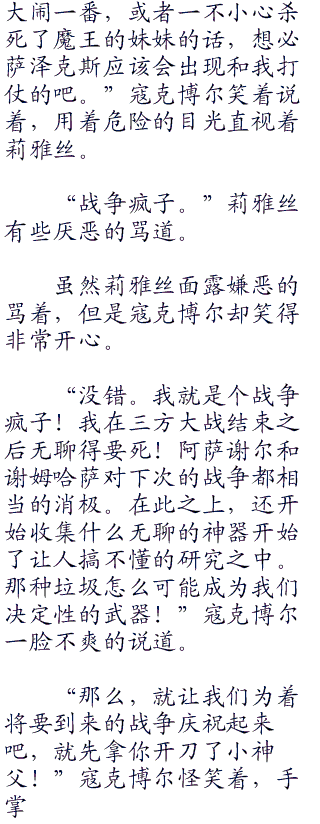 大闹一番，或者一不小心杀
死了魔王的妹妹的话，想必
萨泽克斯应该会出现和我打
仗的吧。”寇克博尔笑着说
着，用着危险的目光直视着
莉雅丝。
“战争疯子。”莉雅丝
有些厌恶的骂道。
虽然莉雅丝面露嫌恶的
骂着，但是寇克博尔却笑得
非常开心。
“没错。我就是个战争
疯子！我在三方大战结束之
后无聊得要死！阿萨谢尔和
谢姆哈萨对下次的战争都相
当的消极。在此之上，还开
始收集什么无聊的神器开始
了让人搞不懂的研究之中。
那种垃圾怎么可能成为我们
决定性的武器！”寇克博尔
一脸不爽的说道。
“那么，就让我们为着
将要到来的战争庆祝起来
吧，就先拿你开刀了小神
父！”寇克博尔怪笑着，手
掌